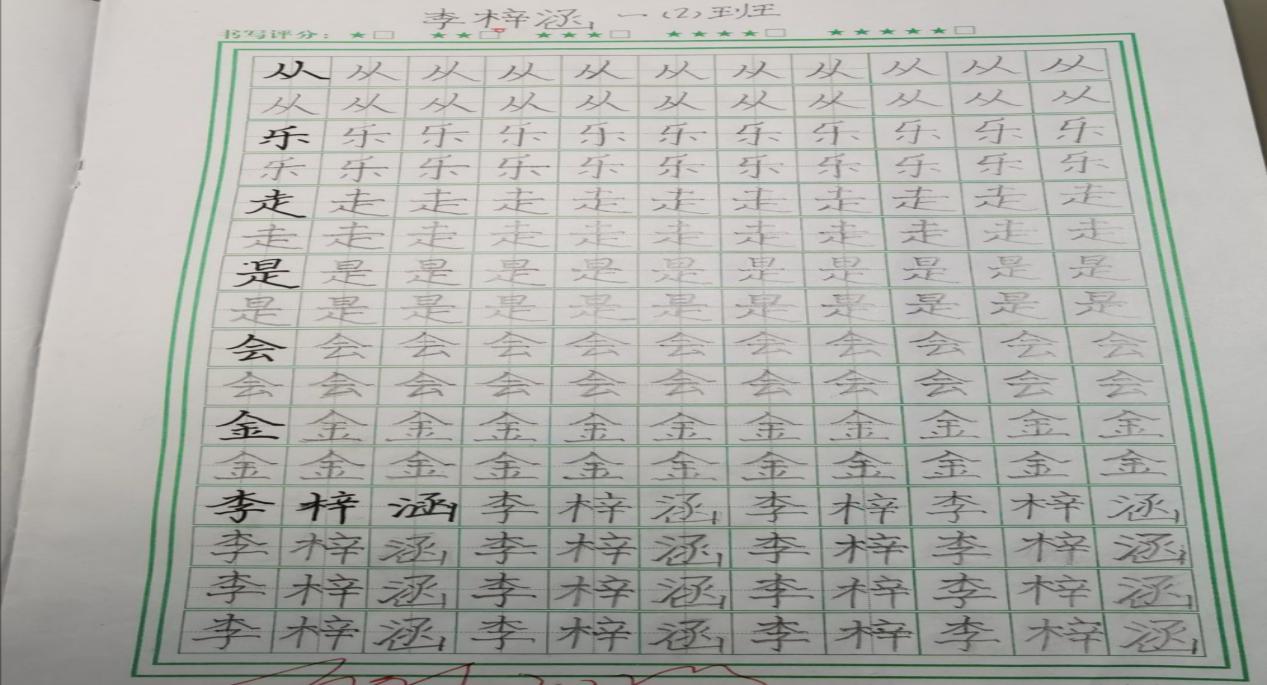 李梓涵 一（2）班
书写评分：★□ ★★□ ★★★□ ★★★★□ ★★★★★□
从从从从从从从从从从从
从从从从从从从从从从从
乐乐乐乐乐乐乐乐乐乐乐
乐乐乐乐乐乐乐乐乐乐乐
走走走走走走走走走走走
走走走走走走走走走走走
是是是是是是是是是是是
是是是是是是是是是是是
会会会会会会会会会会会
会会会会会会会会会会会
金金金金金金金金金金金
金金金金金金金金金金金
李梓涵李梓涵李梓李梓涵
李梓涵李梓涵李梓李梓涵
李梓涵李梓涵李梓李梓涵
李梓涵李梓涵李梓李梓涵